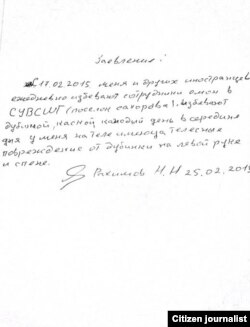 Заявление!
С 17.02.2015 меня и других иностранцев
ежедневно избевают сотрудники омон в
СУВСИГ (поселок сахарова). избевают
дубинкой, каской каждый день в середина
дня у меня на теле имеюца телесные
поврежденее от дубинки на левой руке
и спене.
Рахимов Н.Н 25.02.2015
Citizen journalist